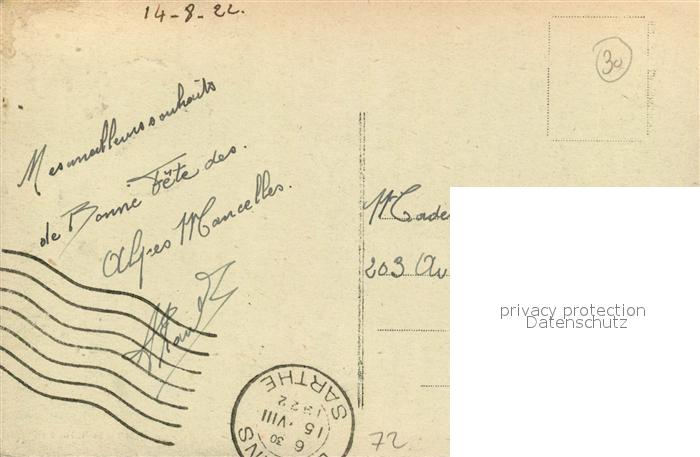 14-8-22.
30
Mes meilleurs souhaits
de Bonne Fête des
Alpes Mancelles.
203 Av
privacy protection
Datenschutz
SARTHE
1922
15 VIII
6 30
72